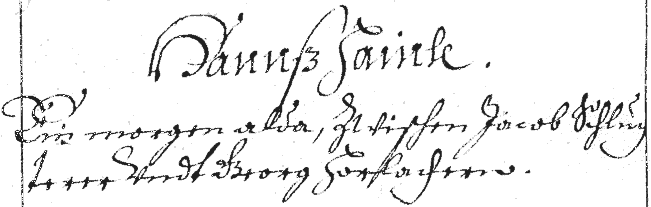 Hannß Hainle.
Ein morgen alda, Zwischen Jacob Schlug
terer Vndt Georg Horlachern.